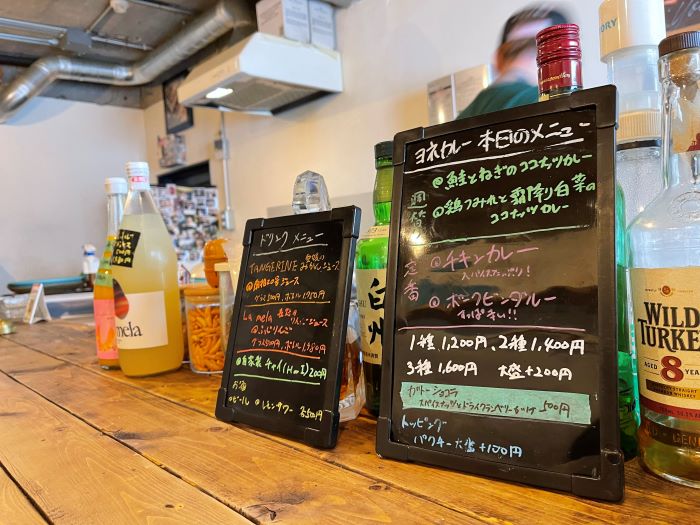 ヨネカレー 本日のメニュー
週替
@鮭とねぎのココナッツカレー
@鶏つみれと霜降り白菜の
ココナッツカレー
定番
@チキンカレー
スパイスたっぷり!
@ポークビンダルー
すっぱ辛い!!
1種 1,200円、2種 1,400円
3種 1,600円 大盛+200円
ガトーショコラ
スパイスナッツとドライクランベリーがけ 500円
トッピング
パクチー大盛 +100円
ドリンクメニュー
TANGERINE
みかんジュース
La mela
りんごジュース
@ふじりんご
@自家製 チャイ(H or I) 200円
お酒
@ビール @レモンサワー 各500円
mela
白州
WILD
TURKEY
AGED 8 YEARS